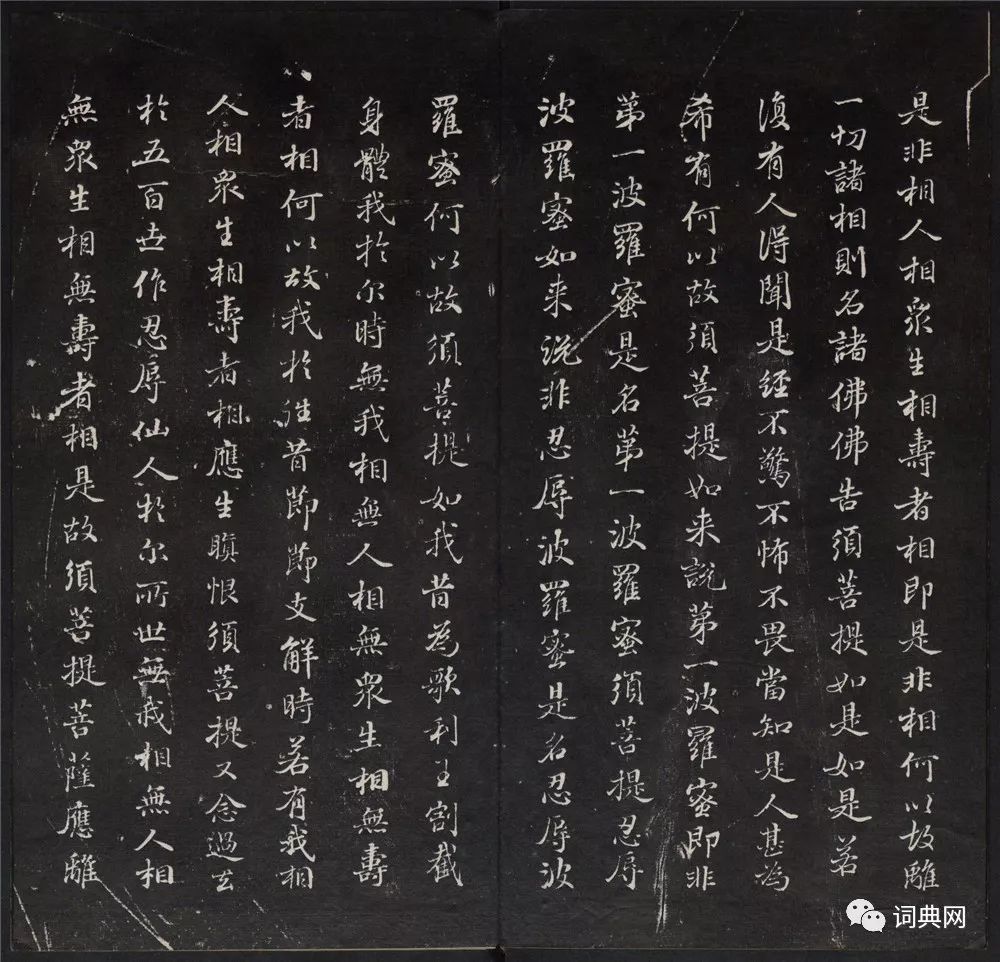 是非相人相眾生相壽者相即是非相何以故離
一切諸相則名諸佛佛告須菩提如是如是若
復有人得聞是經不驚不怖不畏當知是人甚為
希有何以故須菩提如来說第一波羅蜜即非
第一波羅蜜是名第一波羅蜜須菩提忍辱
波羅蜜如来說非忍辱波羅蜜是名忍辱波
羅蜜何以故須菩提如我昔為歌利王割截
身體我於尔時無我相無人相無眾生相無壽
者相何以故我於往昔節節支解時若有我相
人相眾生相壽者相應生瞋恨須菩提又念過去
於五百世作忍辱仙人於尔所世無我相無人相
無眾生相無壽者相是故須菩提菩薩應離
词典网